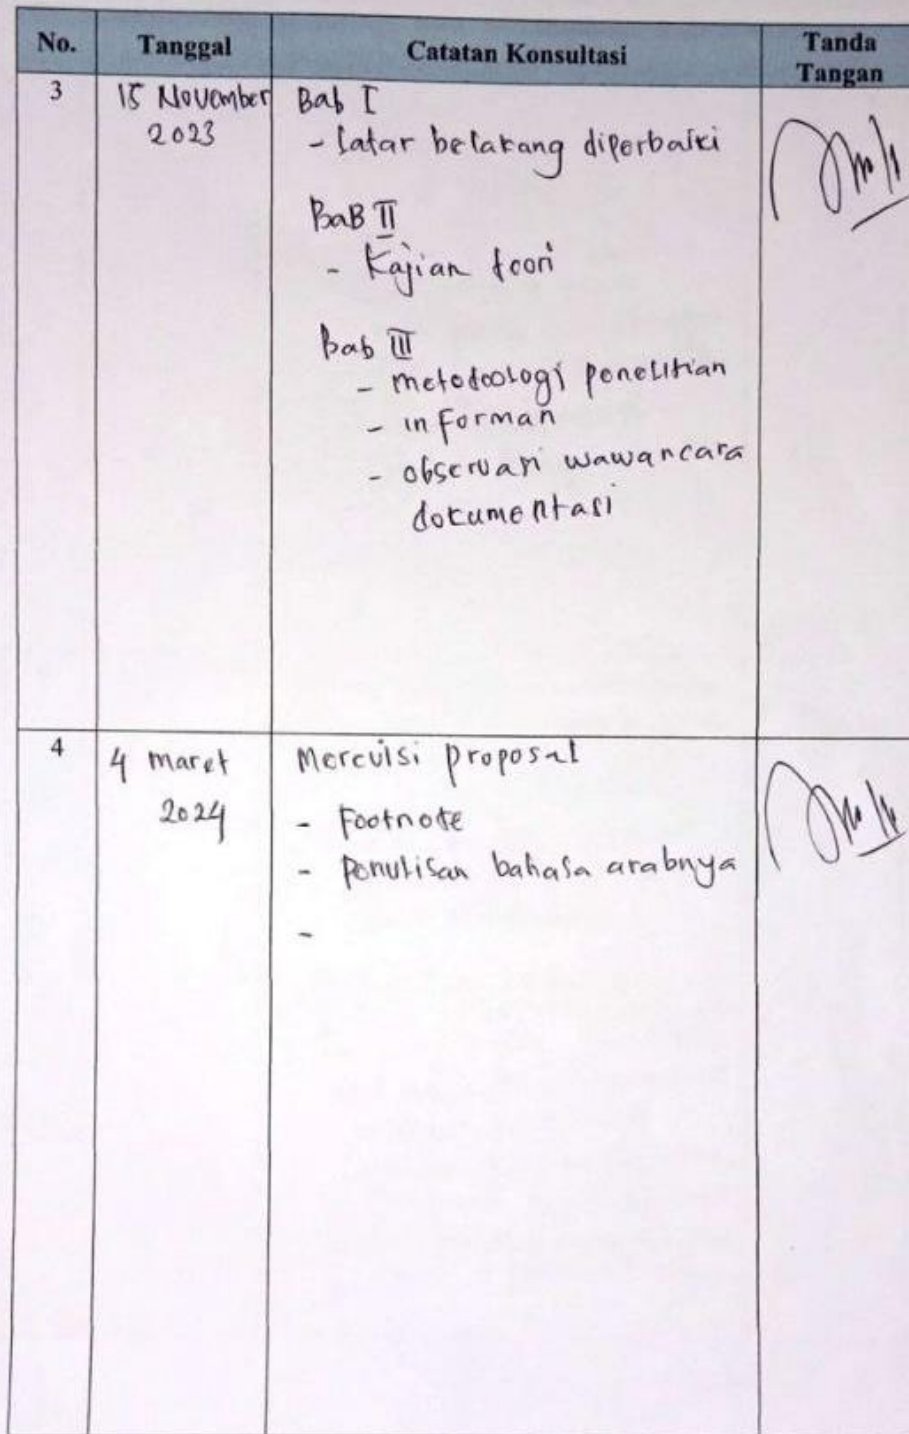 No. Tanggal Catatan Konsultasi Tanda Tangan
3 15 November 2023
Bab I
- Latar belakang diperbaiki
BaB II
- Kajian teori
Bab III
- metodologi penelitian
- informan
- observasi wawancara
dokumentasi
4 4 maret 2024
Merevisi proposal
- Footnote
- Penulisan bahasa arabnya
-